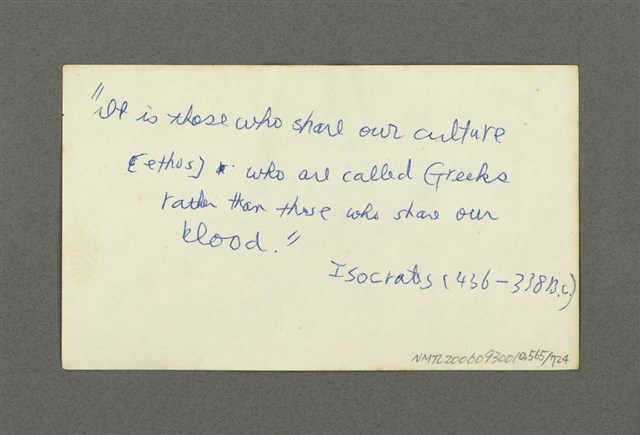 "It is those who share our culture
[ethos] who are called Greeks
rather than those who share our
blood."
Isocrates (436-338B.C.)
NMTL20060930010,565/724